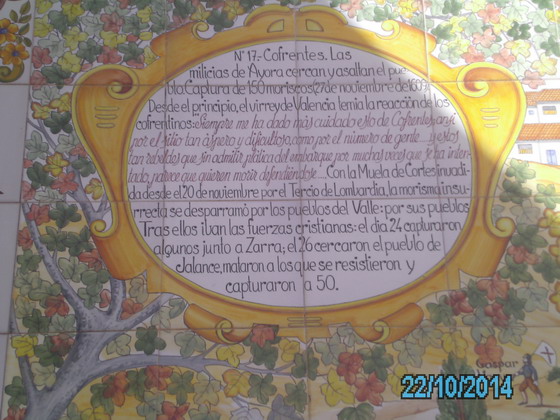 Nº 17.- Cofrentes. Las
milicias de Ayora cercan y asaltan el pue
bla Captura de 150 moriscos (27 de noviembre de 1609
Desde el principio, el virrey de Valencia temia la reacción de los
cofrentinos: Siempre me ha dado más cuidado esto de Cofrentes, ansí
por el sitio tan áspero y dificultoso, como por el número de gente... y estos
tan rebeldes que sin admitir plática del embarque por muchas veces que se ha inten-
tado, parece que quieren morir defendiéndose... Con la Muela de Cortes invadi-
da desde el 20 de noviembre por el Tercio de Lombardia, la morisma insu-
rrecta se desparramó por los pueblos del Valle: por sus pueblos
Tras ellos iban las fuerzas cristianas: el dia 24 capturaron
algunos junto a Zarra; el 26 cercaron el pueblo de
Jalance, mataron a los que se resistieron y
capturaron a 50.
Gaspar
22/10/2014